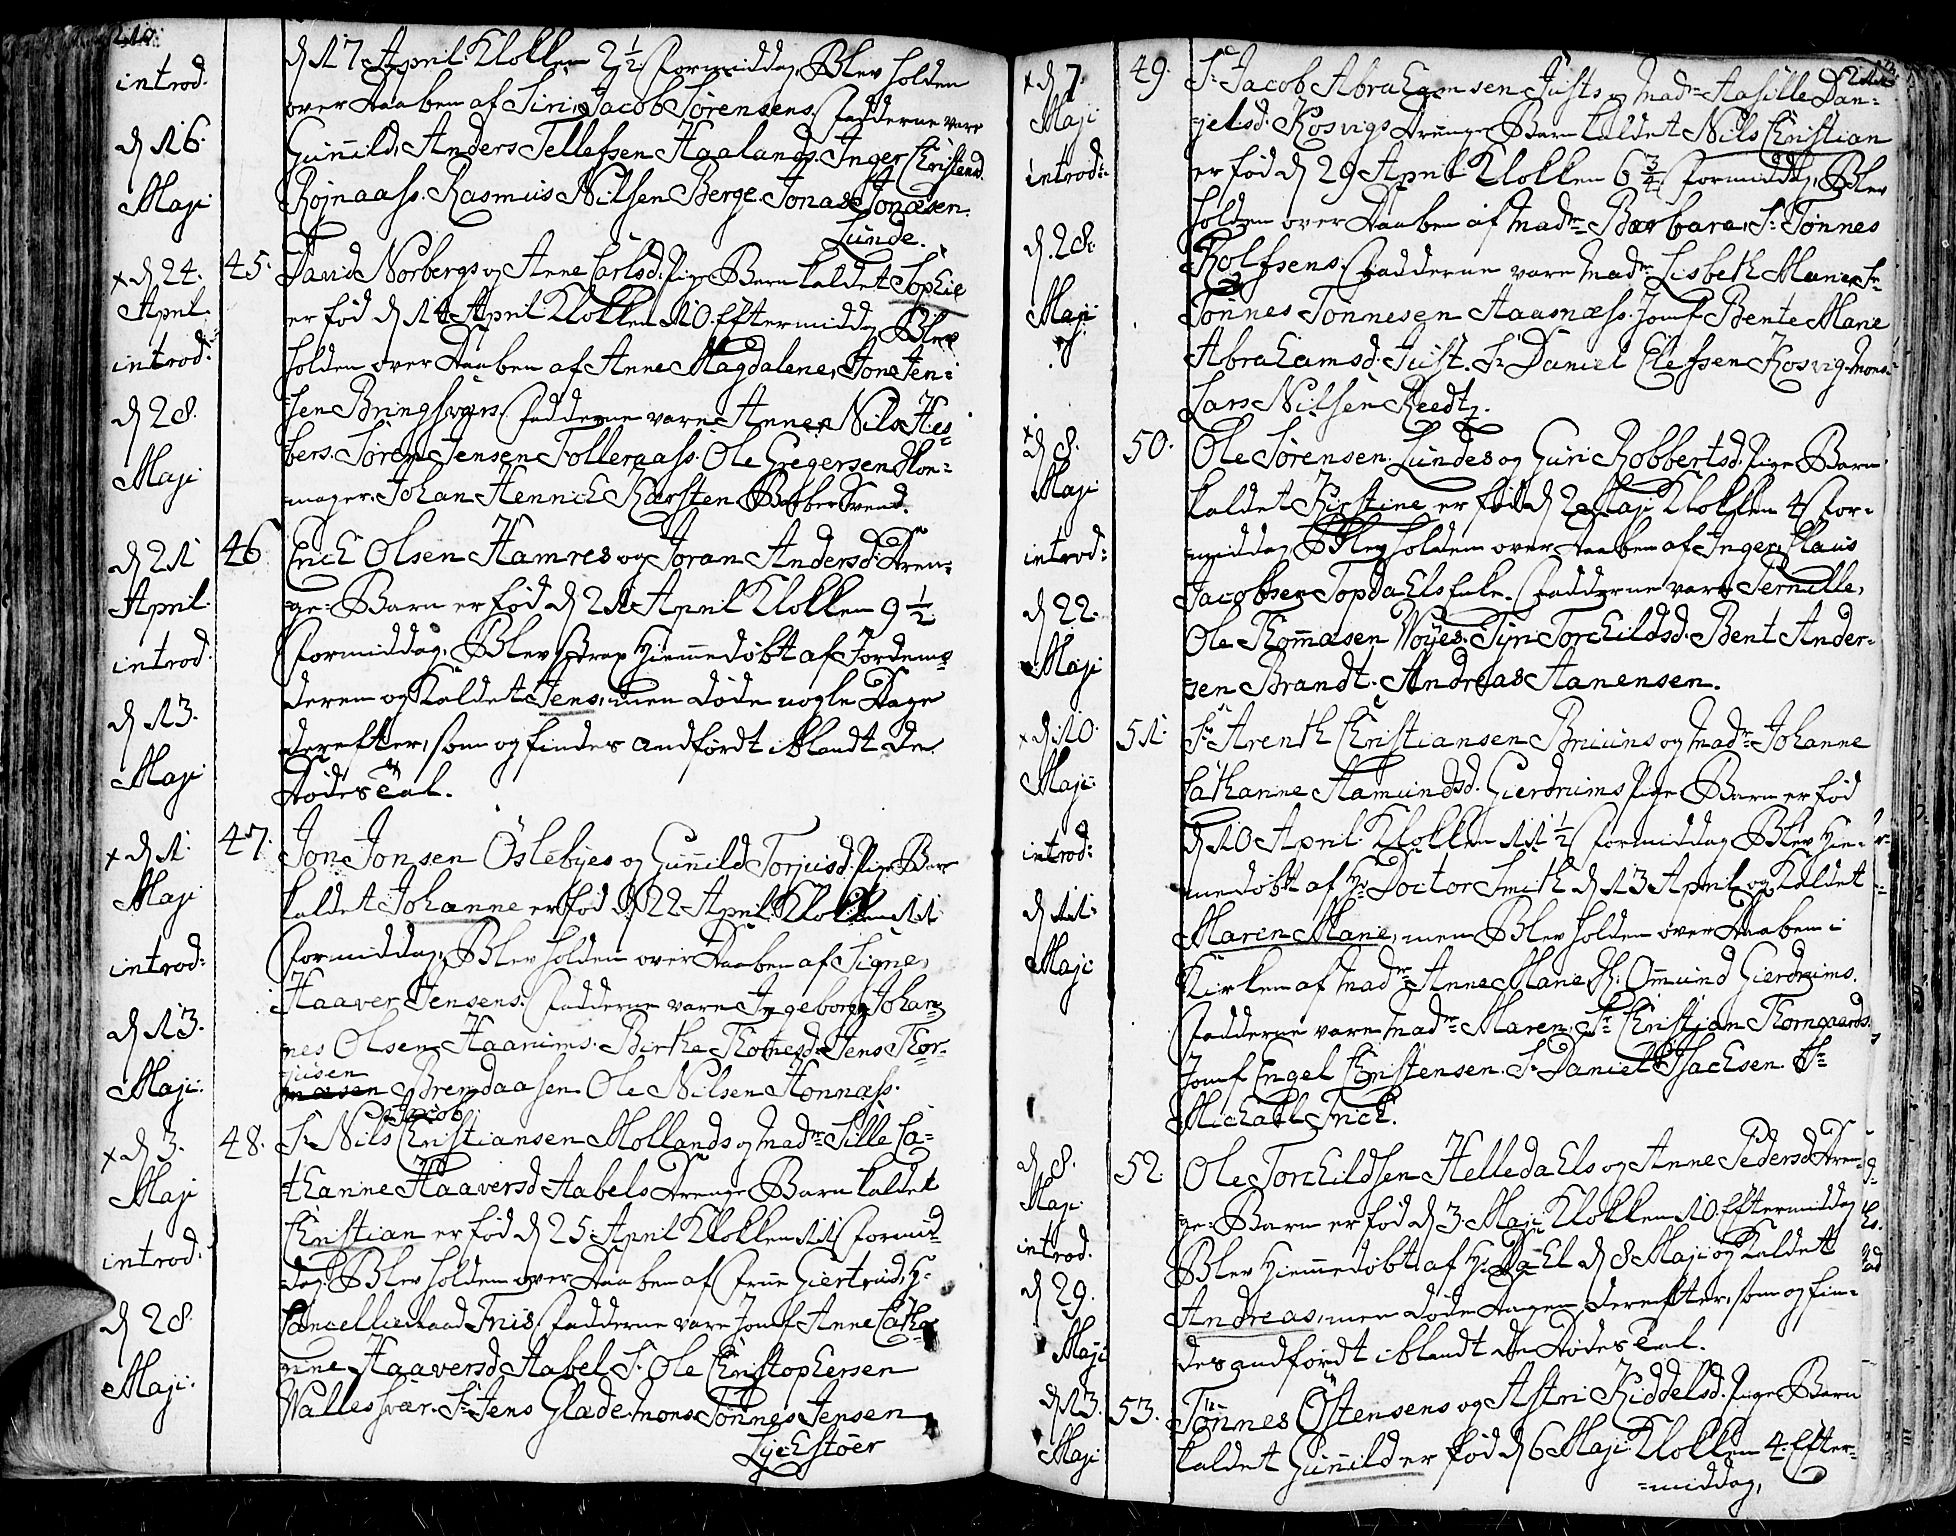 210.
introd:
d 17 April Klokken 2 1/2 Formiddag, Blev holden
over Daaben af Siri, Jacob Sørensens. Fadderne vare
d 16.
Maji
Gunnild, Anders Tellefsen Haalands. Inger Christensd.
Røjnaass. Rasmus Nilsen Berge. Jonas Jonæsen
Lunde.
x d 24.
April
introd:
d 28.
Maji
45.
David Norbergs og Anne Carlsd. Pige Barn kaldet Sophie
er fød d 14 April Klokken 10 Eftermiddag Blev
holden over Daaben af Anne Magdalene, Jone Jen-
sen Bringsværs. Fadderne vare Anne, Nils Hes-
bers. Søren Jensen Tolleraass. Ole Gregersen Hon-
mager. Johan Henrich Karsten Bekker Svend.
d 21
April
introd:
d 13.
Maji
46.
Erich Olsen Hamres og Joran Andersd. Dren-
ge-Barn er fød d 21 April Klokken 9 1/2
Formiddag, Blev strax hiemmedøbt af Jordemo-
deren og Kaldet Jens, men døde nogle Dage
derefter, som og findes andført iblandt De
Dødes Tal.
x d 1.
Maji
introd:
d 13.
Maji:
47.
Jon Jonsen Östebyes og Gunnild Torjusd. Pige Barn
kaldet Johanne er fød d 22 April Klokken 11
Formiddag, Blev holden over Daaben af Signe,
Haaver Jensens. Fadderne vare Ingeborg Johan-
nes Olsen Haanims. Birthe Thomesd. Jens Thor-
jusen
masen Brendaasen Ole Nilsen Honnæss.
x d 3.
Maji
introd:
d 28.
Maji:
48.
Jacob
Sr Nils Christiansen Mollands og Madme Sille Ca-
thanne Haaversd Aabels Drenge Barn kaldet
Christian er fød d 25 April Klokken 11 Formid-
dag. Blev holden over Daaben af Frue Giertrud, Hr
Cancellieraad Friis. Fadderne vare Jomf. Anne Catha-
rine Haaversd Aabel Sr Ole Christophersen
Wallessvær. Sr Jens Glade. Mons. Tønnes Jensen
Lyckstøer
211.
x d 7.
Maji
introd:
d 28.
Maji
49.
Sr Jacob Abrahamsen Justs og Madme Aasille Dan-
jelsd. Kosvigs Drenge Barn kaldet Nils Christian
er fød d 29 April Klokken 6 3/4 Formiddag, Blev
holden over Daaben af Madme Barbara, Sr Tønnes
Rolfsens. Fadderne vare Madme Lisbeth Marie, Sr
Tønnes Tønnesen Aasnæss. Jomf Bente Marie
Abrahamsd. Just. Sr Daniel Elefsen Kosvig. Mons:
Lars Nilsen Reedtz.
x d 8.
Maji
introd:
d 22.
Maji
50.
Ole Sørensen Lundes og Guri Robbertsd. Pige Barn
kaldet Kirstine er fød d 2 Maji Klokken 4 For-
middag Blev holden over Daaben af Inger, Claus
Jacobsen Topdahls Enke. Fadderne vare Pernille,
Ole Thommasen Woyes. Siri Torchildsd. Bent Ander-
sen Brandt. Andreas Aanensen.
x d 10.
Maji:
introd:
d 11.
Maji:
51.
Sr Arenth Christiansen Bruuns og Madme Johanne
Cathanne Aamundsd. Gierdrums Pige Barn er fød
d 10 April Klokken 11 1/2 Formiddag Blev hie-
medøbt af Hr Doctor Smith d 13 April og Kaldet
Maren Marie, men Blev holden over Daaben i
Kirken af Madme Anne Marie Sr Ommund Gierdrums.
Fadderne vare Madme Maren, Sr Christian Thorngaards.
Jomf Engel Christensen. Sr Daniel Isachsen Sr
Michael Frick.
d 8.
Maji
introd.
d 29.
Maji
52.
Ole Torchildsen Helledahls og Anne Pedersd Dren-
ge-Barn er fød d 3. Maji Klokken 10. Eftermiddag
Blev hiemmedøbt af Hr Dahl d 8 Maji og Kaldet
Andreas, men døde Dagen derefter, som og fin-
des andført iblandt De Dødes Tal.
d 13.
Maji
53.
Tønnes Östensens og Astri Kiddelsd. Pige Barn
kaldet Gunnild er fød d 6 Maji Klokken 4. Efter-
-middag,